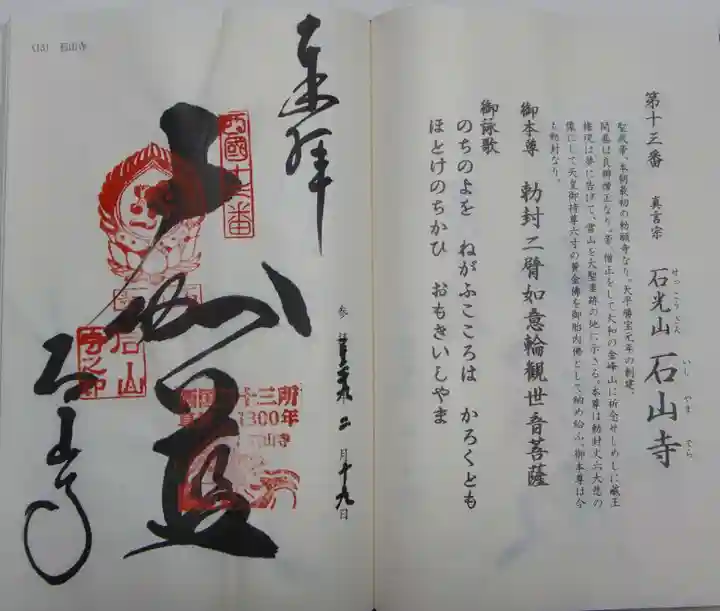 第十三番 真言宗 石光山 石山寺
せっこうざん いし やま でら
聖武帝、本朝最初の勅願寺なり。天平勝宝元年の創建、
開基は良辨僧正なり。
僧正をして大和の金峰山に祈念せしめしに蔵王
権現は夢に告げて、當山を大聖垂跡の地に示さる。本尊は勅封丈六大悲の
像にして天皇御持尊六寸の黄金佛を御胎内佛として納め給ふ、御本尊は今
も勅封なり。
御本尊 勅封二臂如意輪觀世音菩薩
御詠歌
のちのよを ねがふこころは かろくとも
ほとけのちかひ おもきいしやま
(13) 石山寺
奉拝
西國十三番
石山寺
石山
三所
1300年
山寺
二月十九日